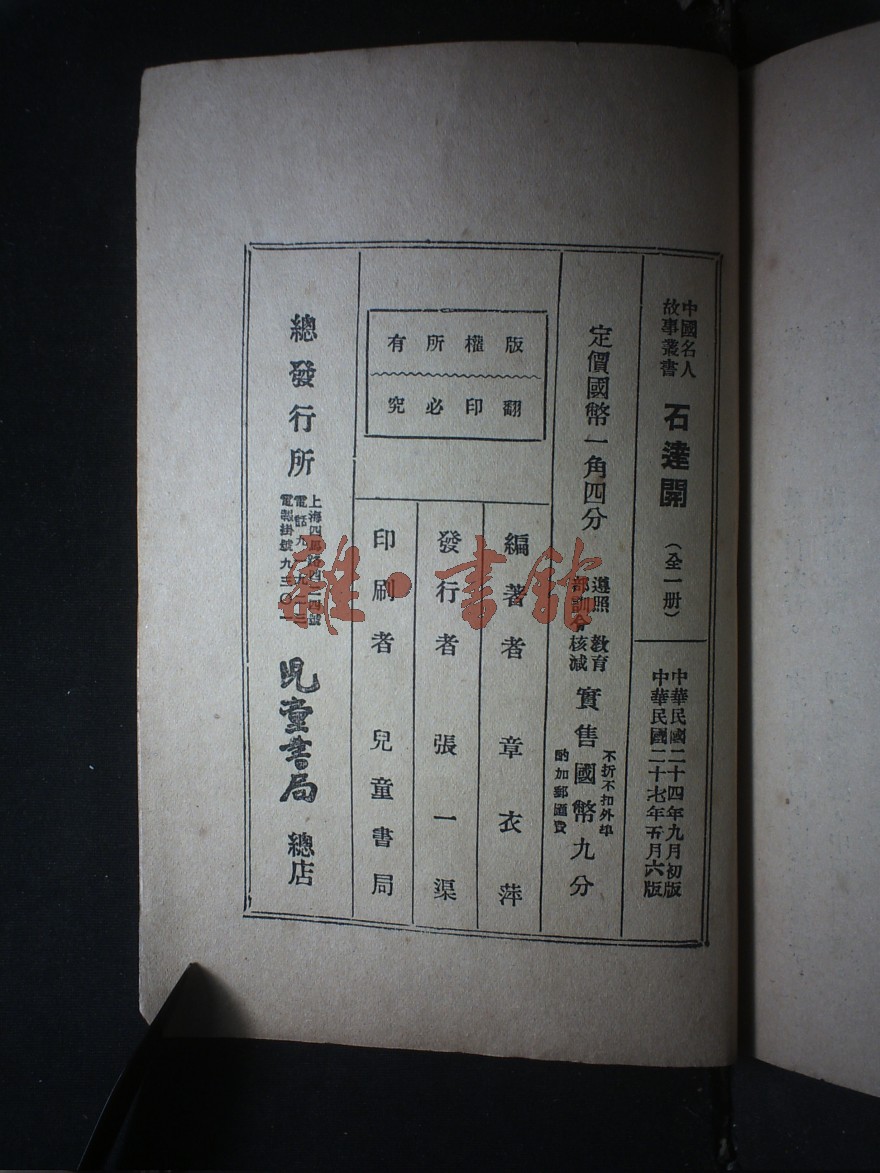 中國名人
故事叢書
石達開
（全一册）
中華民國二十四年九月初版
中華民國二十七年五月六版
定價國幣一角四分
遵照教育
部訓令核減
實售國幣九分
不折不扣外埠
酌加郵匯費
版權所有
翻印必究
編著者 章衣萍
發行者 張一渠
印刷者 兒童書局
總發行所
上海四馬路四二四號
電話九一九二三
電報掛號九三〇一
兒童書局
總店
雜·書館